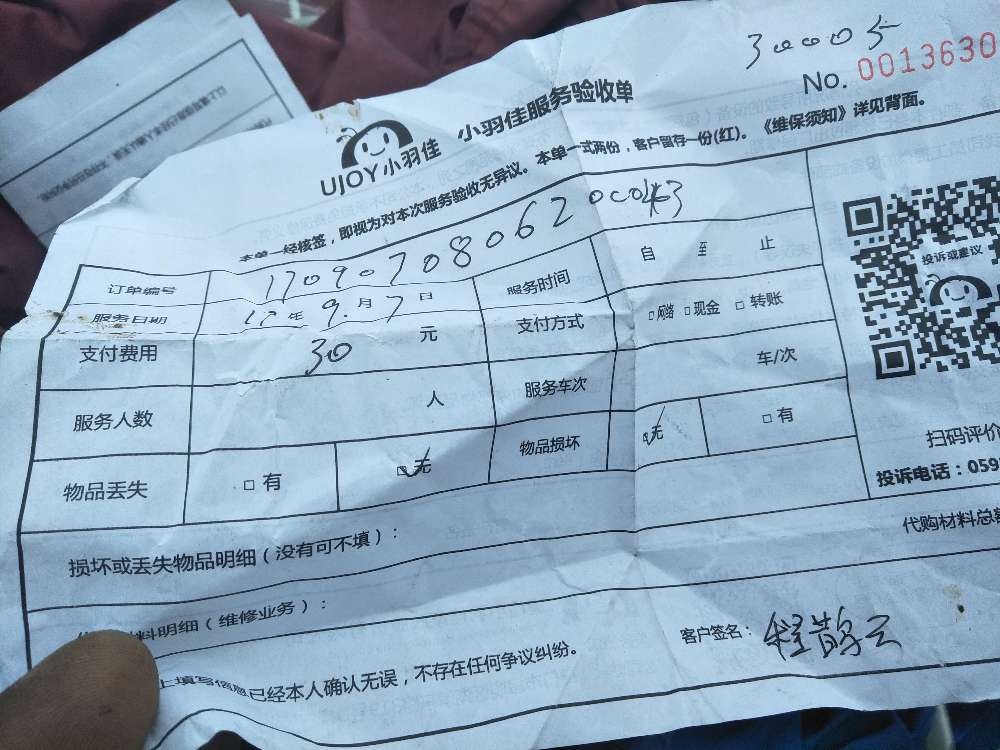 No. 0013630
UJOY小羽佳 小羽佳服务验收单
本单一经核签，即视为对本次服务验收无异议。本单一式两份，客户留存一份(红)。《维保须知》详见背面。
订单编号 服务时间 自 至 止
服务日期 17年 9月 7日
支付费用 30 元 支付方式 □网络 □现金 □转账
服务人数 人 服务车次 车/次
物品丢失 □有 □无 物品损坏 □无 □有
投诉或建议
扫码评价
投诉电话：059
损坏或丢失物品明细（没有可不填）：
代购材料总
料明细（维修业务）：
上填写信息已经本人确认无误，不存在任何争议纠纷。
客户签名：